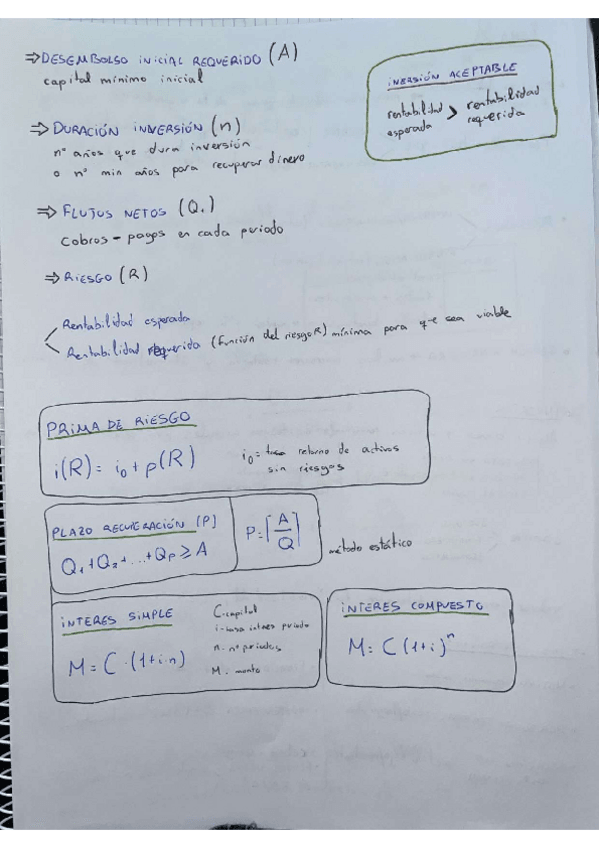 ⇒ DESEMBOLSO INICIAL REQUERIDO (A)
capital mínimo inicial
INVERSIÓN ACEPTABLE
rentabilidad esperada > rentabilidad requerida
⇒ DURACIÓN INVERSIÓN (n)
nº años que dura inversión
o nº min años para recuperar dinero
⇒ FLUJOS NETOS (Q.)
Cobros - pagos en cada periodo
⇒ RIESGO (R)
Rentabilidad esperada
Rentabilidad requerida (función del riesgo R) mínima para que sea viable
PRIMA DE RIESGO
i(R) = i₀ + p(R)
i₀ = tasa retorno de activos
sin riesgos
PLAZO RECUPERACIÓN (P)
Q₁+Q₂+...+Qp ≥ A
P = ⌈A/Q⌉
método estático
INTERES SIMPLE
M = C · (1+i·n)
C: capital
i: tasa interes periodo
n: nº periodos
M: monto
INTERES COMPUESTO
M = C (1+i)ⁿ